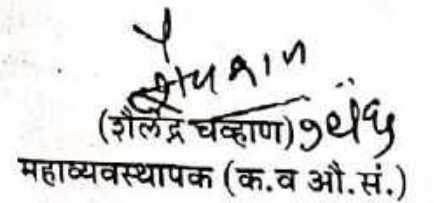 (शैलेंद्र चव्हाण)
महाव्यवस्थापक (क.व औ.सं.)